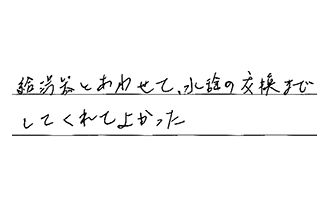 給湯器とあわせて、水栓の交換まで
してくれてよかった